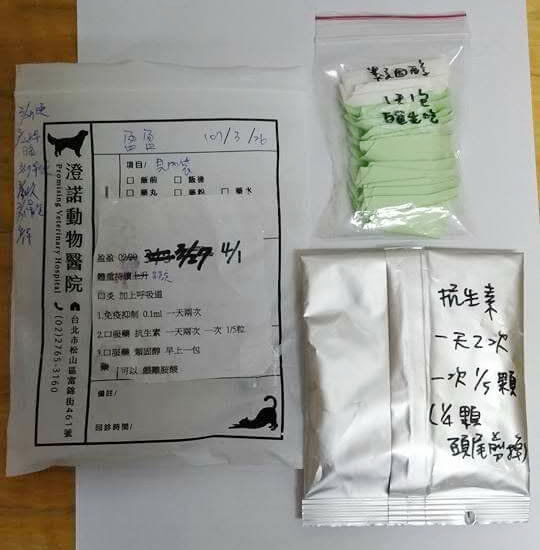 澄諾動物醫院
Promising Veterinary Hospital
(02)2765-3160
台北市松山區富錦街461號
盈盈 107/3/26
項目/見內袋
□ 飯前 □ 飯後
□ 藥丸 □ 藥粉 □ 藥水
盈盈 3/27 4/1
體重持續上升
口炎 加上呼吸道
1.免疫抑制 0.1ml 一天兩次
2.口服藥 抗生素 一天兩次 一次 1/5粒
3.口服藥 類固醇 早上一包
可以 離胺酸
備註/
回診時間/
類固醇
1天1包
抗生素
一天2次
一次 1/5顆
(1/4顆
頭尾剪掉)